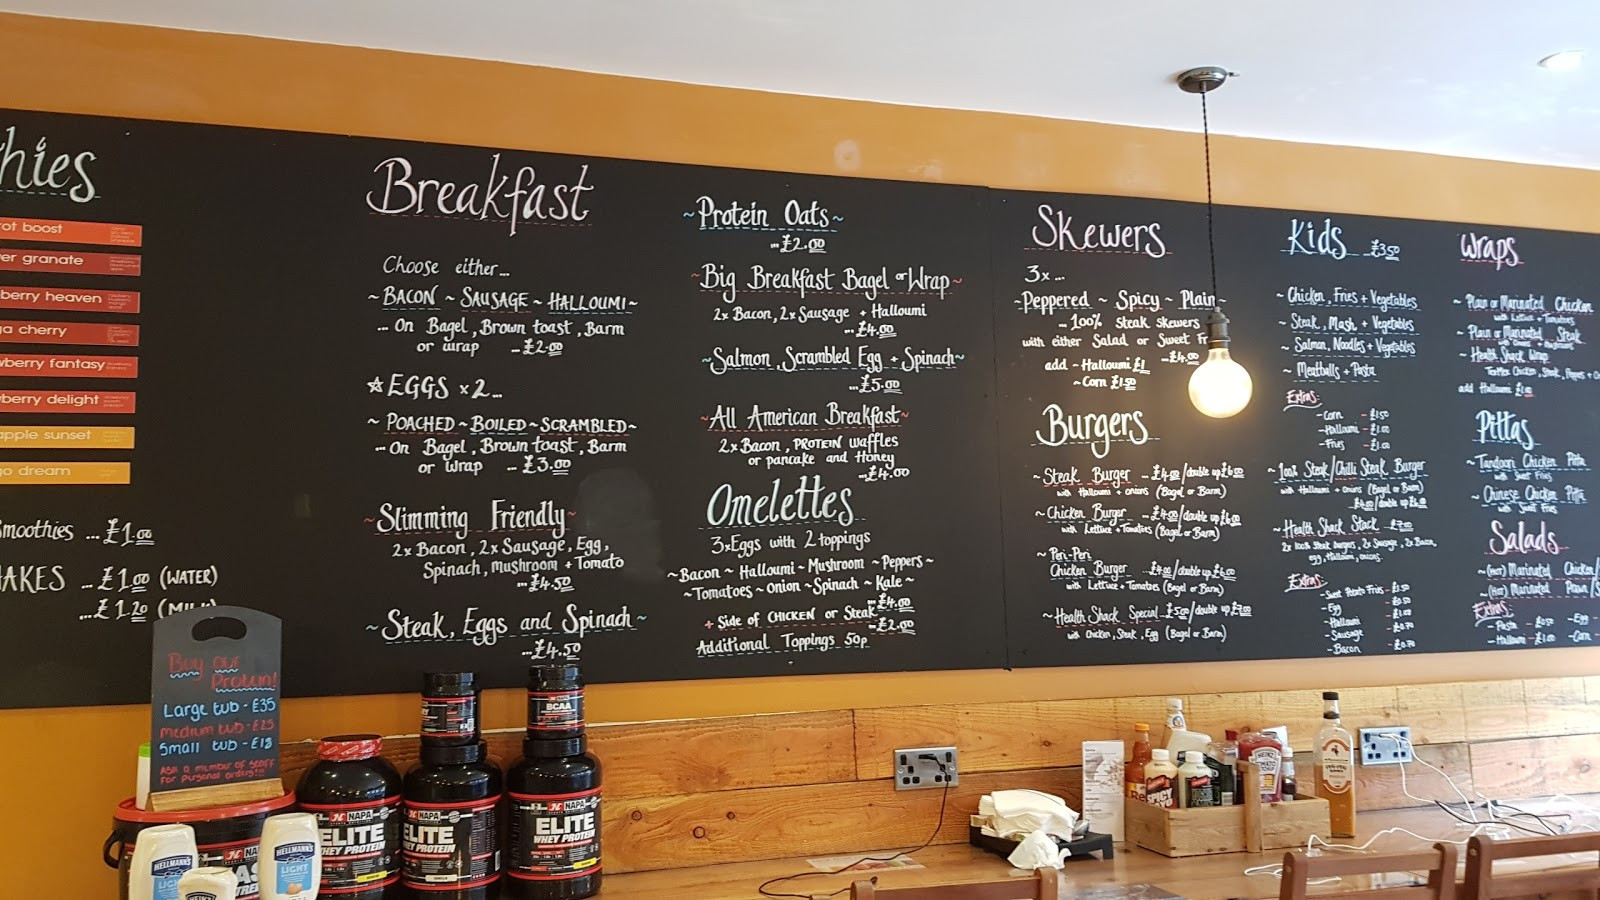 hies
ot boost
er granate
berry heaven
a cherry
wberry fantasy
berry delight
apple sunset
go dream
moothies ... £1.00
AKES ... £1.00 (WATER)
... £1.20 (MILK)
Breakfast
Choose either...
~ BACON ~ SAUSAGE ~ HALLOUMI ~
... On Bagel, Brown toast, Barm
or wrap ... £2.00
☆ EGGS x 2...
~ POACHED ~ BOILED ~ SCRAMBLED ~
... On Bagel, Brown toast, Barm
or wrap ... £3.00
~ Slimming Friendly ~
2x Bacon, 2x Sausage, Egg,
Spinach, mushroom + Tomato
... £4.50
~ Steak, Eggs and Spinach ~
... £4.50
~ Protein Oats ~
... £2.00
~ Big Breakfast Bagel or Wrap ~
2x Bacon, 2x Sausage + Halloumi
... £4.00
~ Salmon, Scrambled Egg + Spinach ~
... £5.00
~ All American Breakfast ~
2x Bacon, PROTEIN waffles
or pancake and Honey
... £4.00
Omelettes
3x Eggs with 2 toppings
~ Bacon ~ Halloumi ~ Mushroom ~ Peppers ~
~ Tomatoes ~ Onion ~ Spinach ~ Kale ~
... £4.00
+ Side of CHICKEN or Steak
... £2.00
Additional Toppings 50p
Skewers
3x ...
~ Peppered ~ Spicy ~ Plain ~
... 100% Steak skewers
with either Salad or Sweet Fr
... £4.00
add ~ Halloumi £1
~ Corn £1.50
Burgers
~ Steak Burger ... £4.00/double up £6.00
with Halloumi + onions (Bagel or Barm)
~ Chicken Burger ... £4.00/double up £6.00
with Lettuce + Tomatoes (Bagel or Barm)
~ Peri-Peri
Chicken Burger ... £4.00/double up £6.00
with Lettuce + Tomatoes (Bagel or Barm)
~ Health Shack Special £5.00/double up £7.00
with Chicken, Steak, Egg (Bagel or Barm)
Kids ... £3.50
~ Chicken, Fries + Vegetables
~ Steak, Mash + Vegetables
~ Salmon, Noodles + Vegetables
~ Meatballs + Pasta
Extras:
- Corn - £1.50
- Halloumi - £1.00
- Fries - £1.00
~ 100% Steak/Chilli Steak Burger
with Halloumi + onions (Bagel or Barm)
£4.00/double up £6.00
~ Health Shack Stack £7.00
2x 100% Steak burgers, 2x Sausage, 2x Bacon,
egg, Halloumi, onions.
Extras:
- Sweet Potato Fries - £1.50
- Egg - £0.50
- Halloumi - £1.00
- Sausage - £0.70
- Bacon - £0.70
Wraps
~ Plain or Marinated Chicken
with Lettuce + Tomatoes
~ Plain or Marinated Steak
~ Health Shack Wrap
TexMex Chicken, Steak, Peppers + On
add Halloumi £1.00
Pittas
~ Tandoori Chicken Pitta
with Sweet Fries
~ Chinese Chicken Pitta
with Sweet Fries
Salads
~ (Hot) Marinated Chicken/
~ (Hot) Marinated
Extras:
- Pasta - £0.50 - Egg -
- Halloumi - £1.00 - Corn -
Buy our
Protein!
Large tub - £35
Medium tub - £25
Small tub - £18
Ask a member of staff
for personal orders!!!
HELLMANN'S
LIGHT
HEINZ
HELLMANN'S
LIGHT
NAPA
ELITE
WHEY PROTEIN
NAPA
ELITE
WHEY PROTEIN
BCAA
NAPA
ELITE
WHEY PROTEIN
SPICY
HEINZ
TOMATO